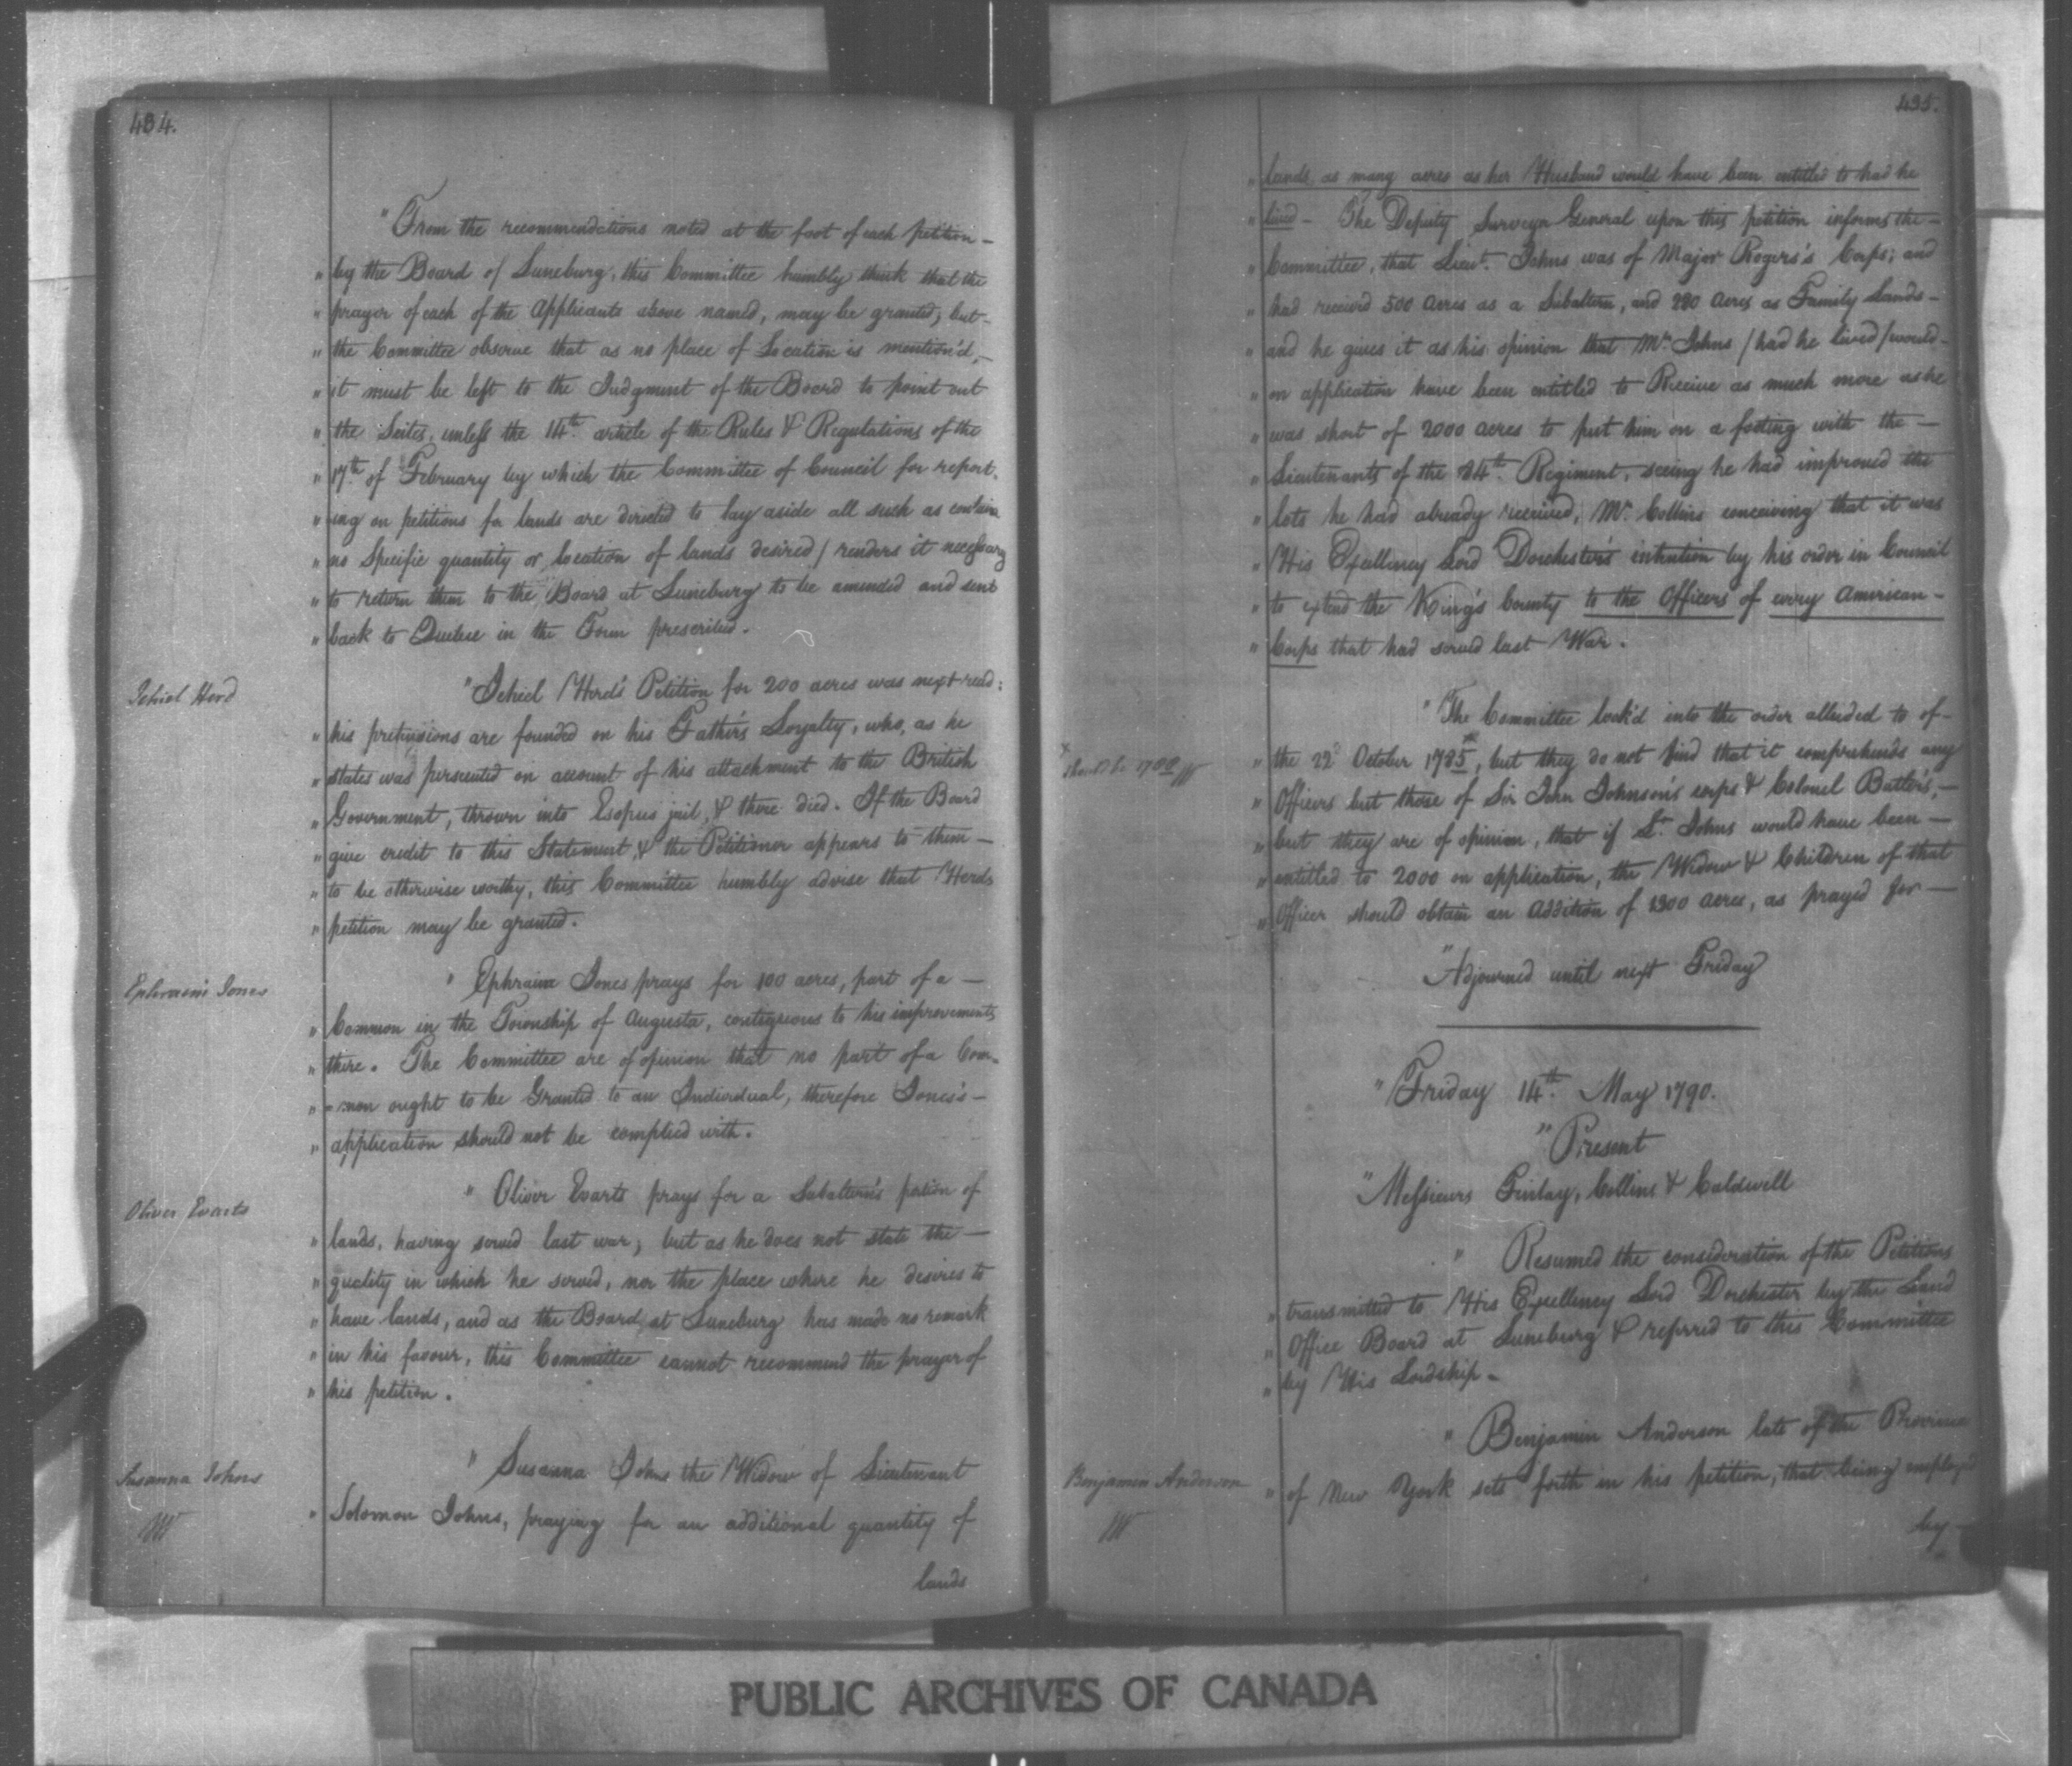 434.
"From the recommendations noted at the foot of each petition –
" by the Board of Luneburg, this Committee humbly think that the
" prayer of each of the Applicants above named, may be granted; but –
" the Committee observe that as no place of Location is mention'd, –
" it must be left to the Judgment of the Board to point out
" the Scites, unless the 14th. article of the Rules & Regulations of the
" 17th. of February by which the Committee of Council for report-
" -ing on petitions for lands are directed to lay aside all such as contain
" no Specific quantity or location of lands desired / renders it necessary
" to return them to the Board at Luneburg to be amended and sent
" back to Quebec in the Form prescribed.
Jehiel Herd
"Jehiel Herd's Petition for 200 acres was next read;
" his pretensions are founded on his Father's Loyalty, who, as he
" states was persecuted on account of his attachment to the British
" Government, thrown into Esopus jail, & there died. If the Board
" give credit to this Statement, & the Petitioner appears to them –
" to be otherwise worthy, this Committee humbly advise that Herds
" petition may be granted.
Ephraim Jones
" Ephraim Jones prays for 100 acres, part of a –
" Common in the Township of Augusta, contiguous to his improvements
" there. The Committee are of opinion that no part of a Com-
" -mon ought to be Granted to an Individual, therefore Jones's –
" application should not be complied with.
Oliver Evarts
" Oliver Evarts prays for a Subaltern's portion of
" lands, having served last war; but as he does not state the –
" quality in which he served, nor the place where he desires to
" have lands, and as the Board at Luneburg has made no remark
" in his favour, this Committee cannot recommend the prayer of
" his petition.
Susanna Johns
W
" Susanna Johns the Widow of Lieutenant
" Solomon Johns, praying for an additional quantity of
lands
435.
" lands, as many acres as her Husband would have been entitled to had he
" lived – The Deputy Surveyor General upon this petition informs the –
" Committee, that Lieut. Johns was of Major Rogers's Corps; and
" had received 500 acres as a Subaltern, and 200 acres as Family Lands –
" and he gives it as his opinion that Mr. Johns / had he lived / would –
" on application have been entitled to Receive as much more as he
" was short of 2000 acres to put him on a footing with the –
" Lieutenants of the 84th. Regiment, seeing he had improved the
" lots he had already received; Mr. Collins conceiving that it was
" His Excellency Lord Dorchester's intention by his order in Council
" to extend the King's bounty to the Officers of every American –
" Corps that had served last War.
"The Committee look'd into the order alluded to of –
" the 22d October 1785, but they do not find that it comprehends any
x should be 1788 W
" Officers but those of Sir John Johnson's corps & Colonel Butler's, –
" but they are of opinion, that if Lt. Johns would have been –
" entitled to 2000 on application, the Widow & Children of that
" Officer should obtain an addition of 1300 acres, as prayed for –
"Adjourned until next Friday
"Friday 14th. May 1790.
"Present
"Messieurs Finlay, Collins & Caldwell
" Resumed the consideration of the Petitions
" transmitted to His Excellency Lord Dorchester by the Land
" Office Board at Luneburg & referred to this Committee
" by His Lordship –
Benjamin Anderson
W
" Benjamin Anderson late of the Province
" of New York sets forth in his petition, that being employed
by –
PUBLIC ARCHIVES OF CANADA